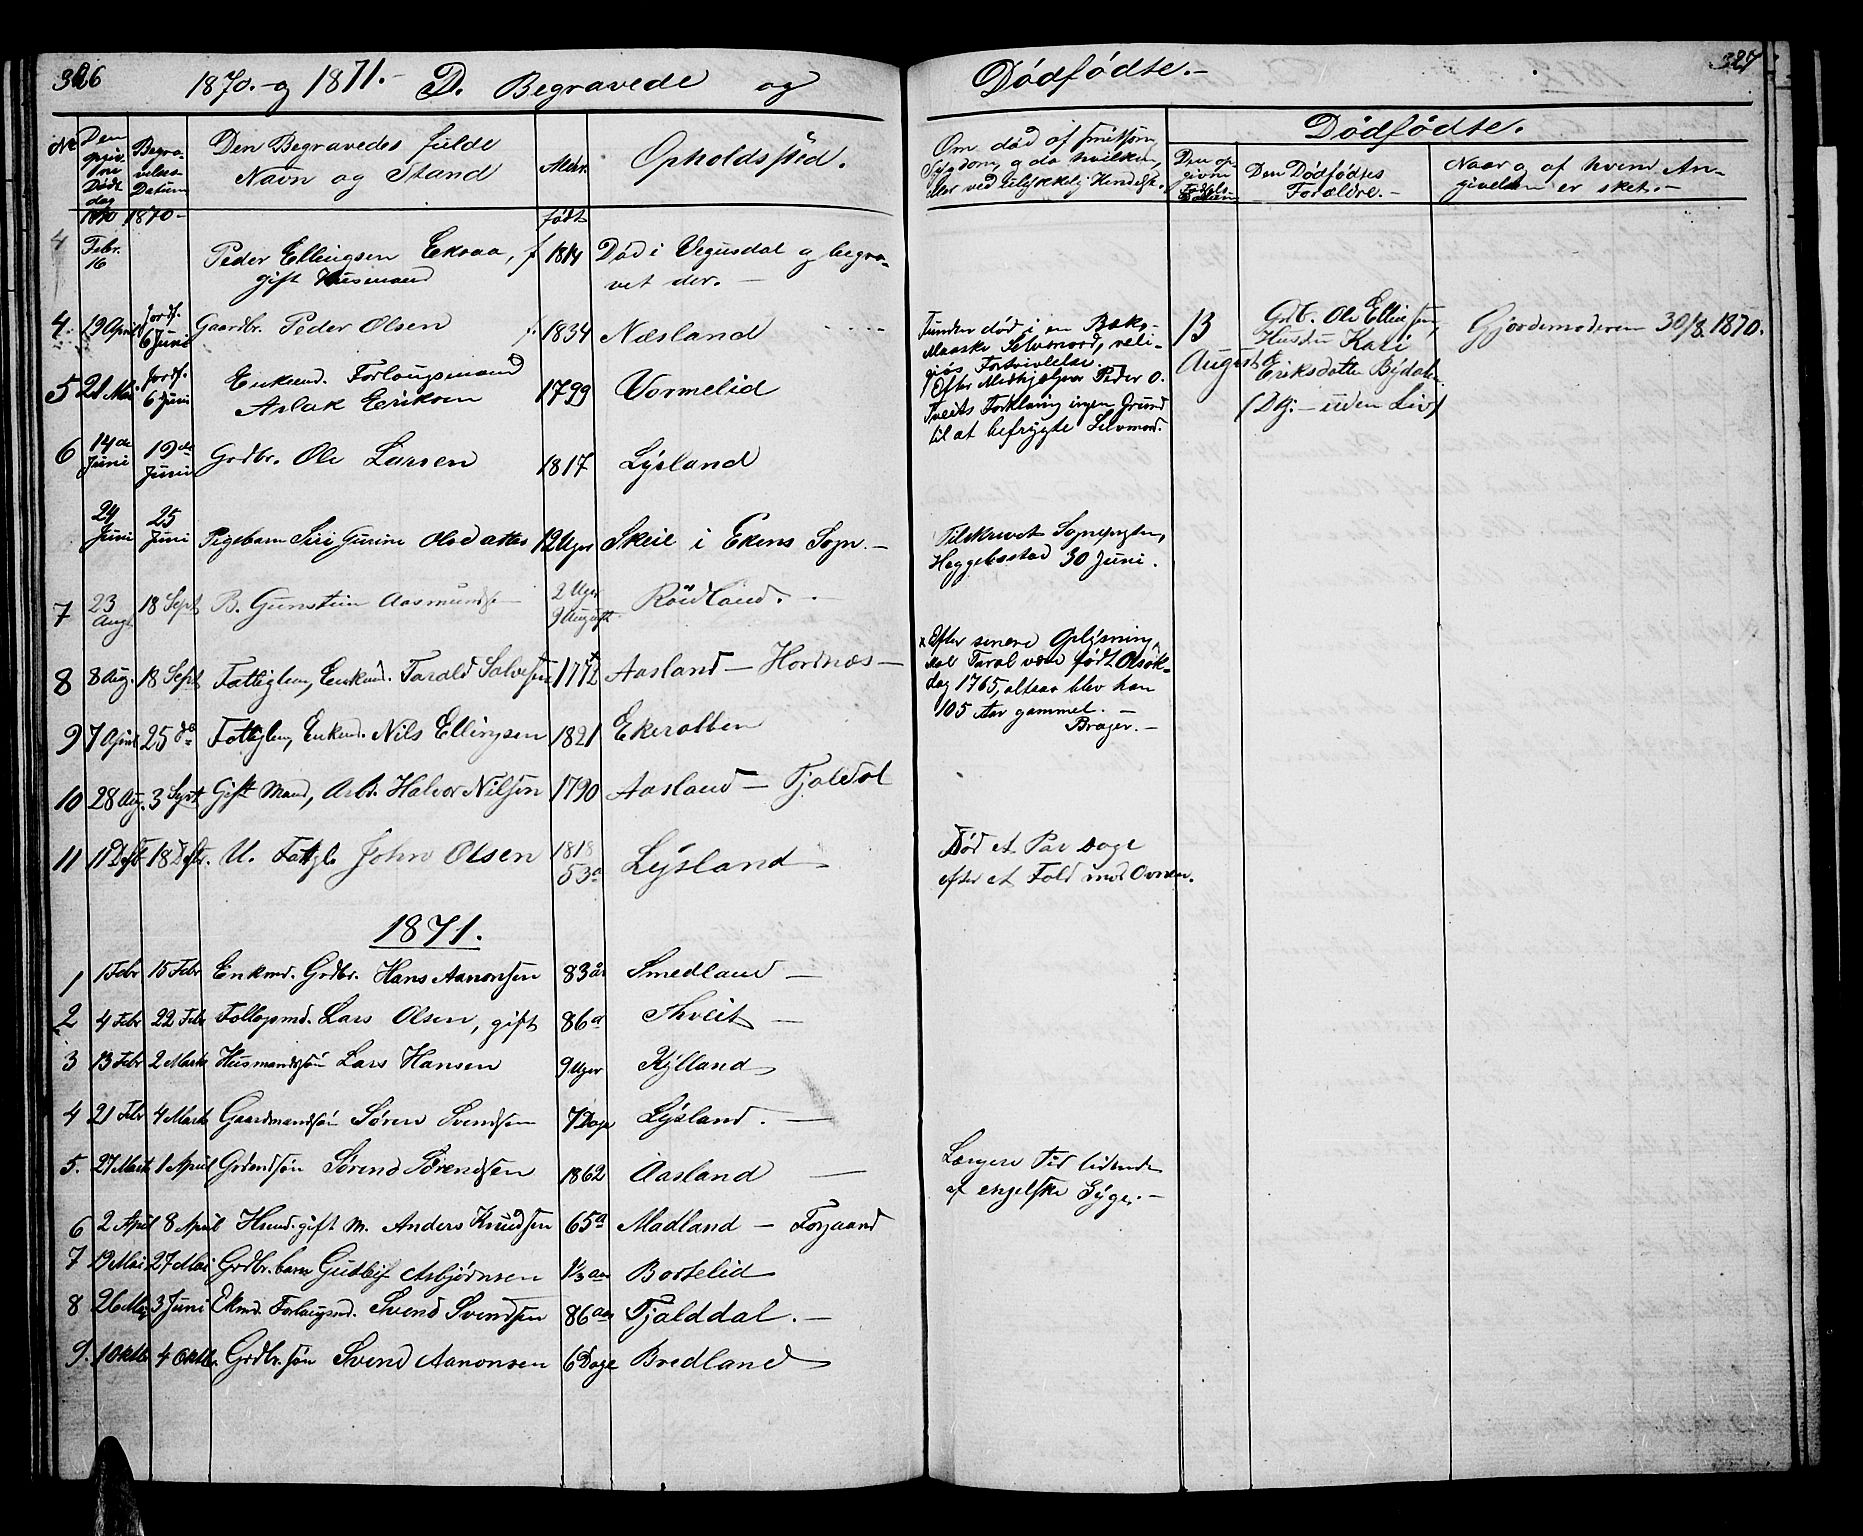 326
1870. og 1871. - D. Begravede og
No
Den opgivne Døds dag
Begravelses Datum
Den Begravedes fulde
Navn og Stand
Alder.
Opholdssted.
1870 1870 - født
4 Febr. 16 Peder Ellingsen Ekraa, f 1814 Død i Vegusdal og begra-
gift Husmand vet der. -
4. 19 April Jordf. 6 Juni Gaardbr. Peder Olsen f. 1834 Næsland
5 21 Mai Jordf. 6 Juni Enkemd. Forlaugsmand
Aslak Eriksen 1799 Vormelid
6 14de Juni 19de Juni Grdbr. Ole Larsen 1817 Lÿsland
24 Juni 25 Juni Pigebarn Siri Gurine Olsdatter 12 Uger Skeie i Ekens Sogn. -
7 23 Aug. 18 Sept B. Gunstein Aasmunds 2 Uger
9 August. Röidland. -
8 8 Aug. 18 Sept Fattiglem, Enkmd. Tarald Salvesen 1772 Aasland - Hordnæs -
9 7 April 25 do Fattiglem, Enkemd. Nils Ellingsen 1821 Ekeratten
10 28 Aug. 3 Sept Gift Mand, Arb. Halvor Nilsen 1790 Aasland - Fjaldal
11 11 18 U. Fattgl. John Olsen 1818
53 a Lÿsland
1871.
1 1 Febr 15 Febr Enkmd. Grdbr. Hans Aanonsen 83 år Smedland -
2 4 Febr 22 Febr Lars Olsen, gift 86 a Thveit -
3 13 Febr 2 Marts Husmandssön Lars Hansen 9 Uger Kÿlland
4 21 Febr 4 Marts Gaardmandssön Søren Svendsen 7 Dage Lÿsland. -
5. 27 Marts 1 April Grdmdsön Sørend Sørendsen 1862 Aasland -
6 2 April 8 April Hsmd. gift m. Anders Knudsen 65 a Madland - Torgaard
7 19 Mai 27 Mai Grdbr. barn Gutleif Asbjørnsen 1 1/3 aar Bortelid
8 26 Mai 3 Juni Ekmd. Forlaugsmd. Svend Svendsen 86 aar Fjalddal. -
9. 1 Oktb 4 Oktbr. Grdbr. sön Svend Aanonsen 6 Dage Bredland
327
Dødfødte. -
Om død af smitsom
Sygdom og da hvilken,
eller ved ulykkelig Hendelse.
Dødfødte.
Den opgivne Fødsels Datum
Den Dødfødtes
Forældre. -
Naar og af hvem An-
givelsen er sket. -
Funden død i en Bæk -
Maaske Selvmord, reli-
giøs Fortvivlelse.
Efter Medhjælper Peder O.
Tveits Forklaring ingen Grund
til at befrygte Selvmord.
13
August
Grdb. Ole Ellefsen,
Hustru Kari
Eriksdatter Bÿdalen
(Dg. - uden Liv)
Gjordemoderen 30/8 1870.
Tilskrevet Sognepresten,
Heggebostad 30 Juni.
x Efter senere Oplÿsning
skal Taral være født Olsok-
dag 1765, altsaa blev han
105 Aar gammel. -
Brager. -
Død et Par Dage
efter et Fald mod Ovnen.
Længere Tid lidende
af engelske Sÿge. -